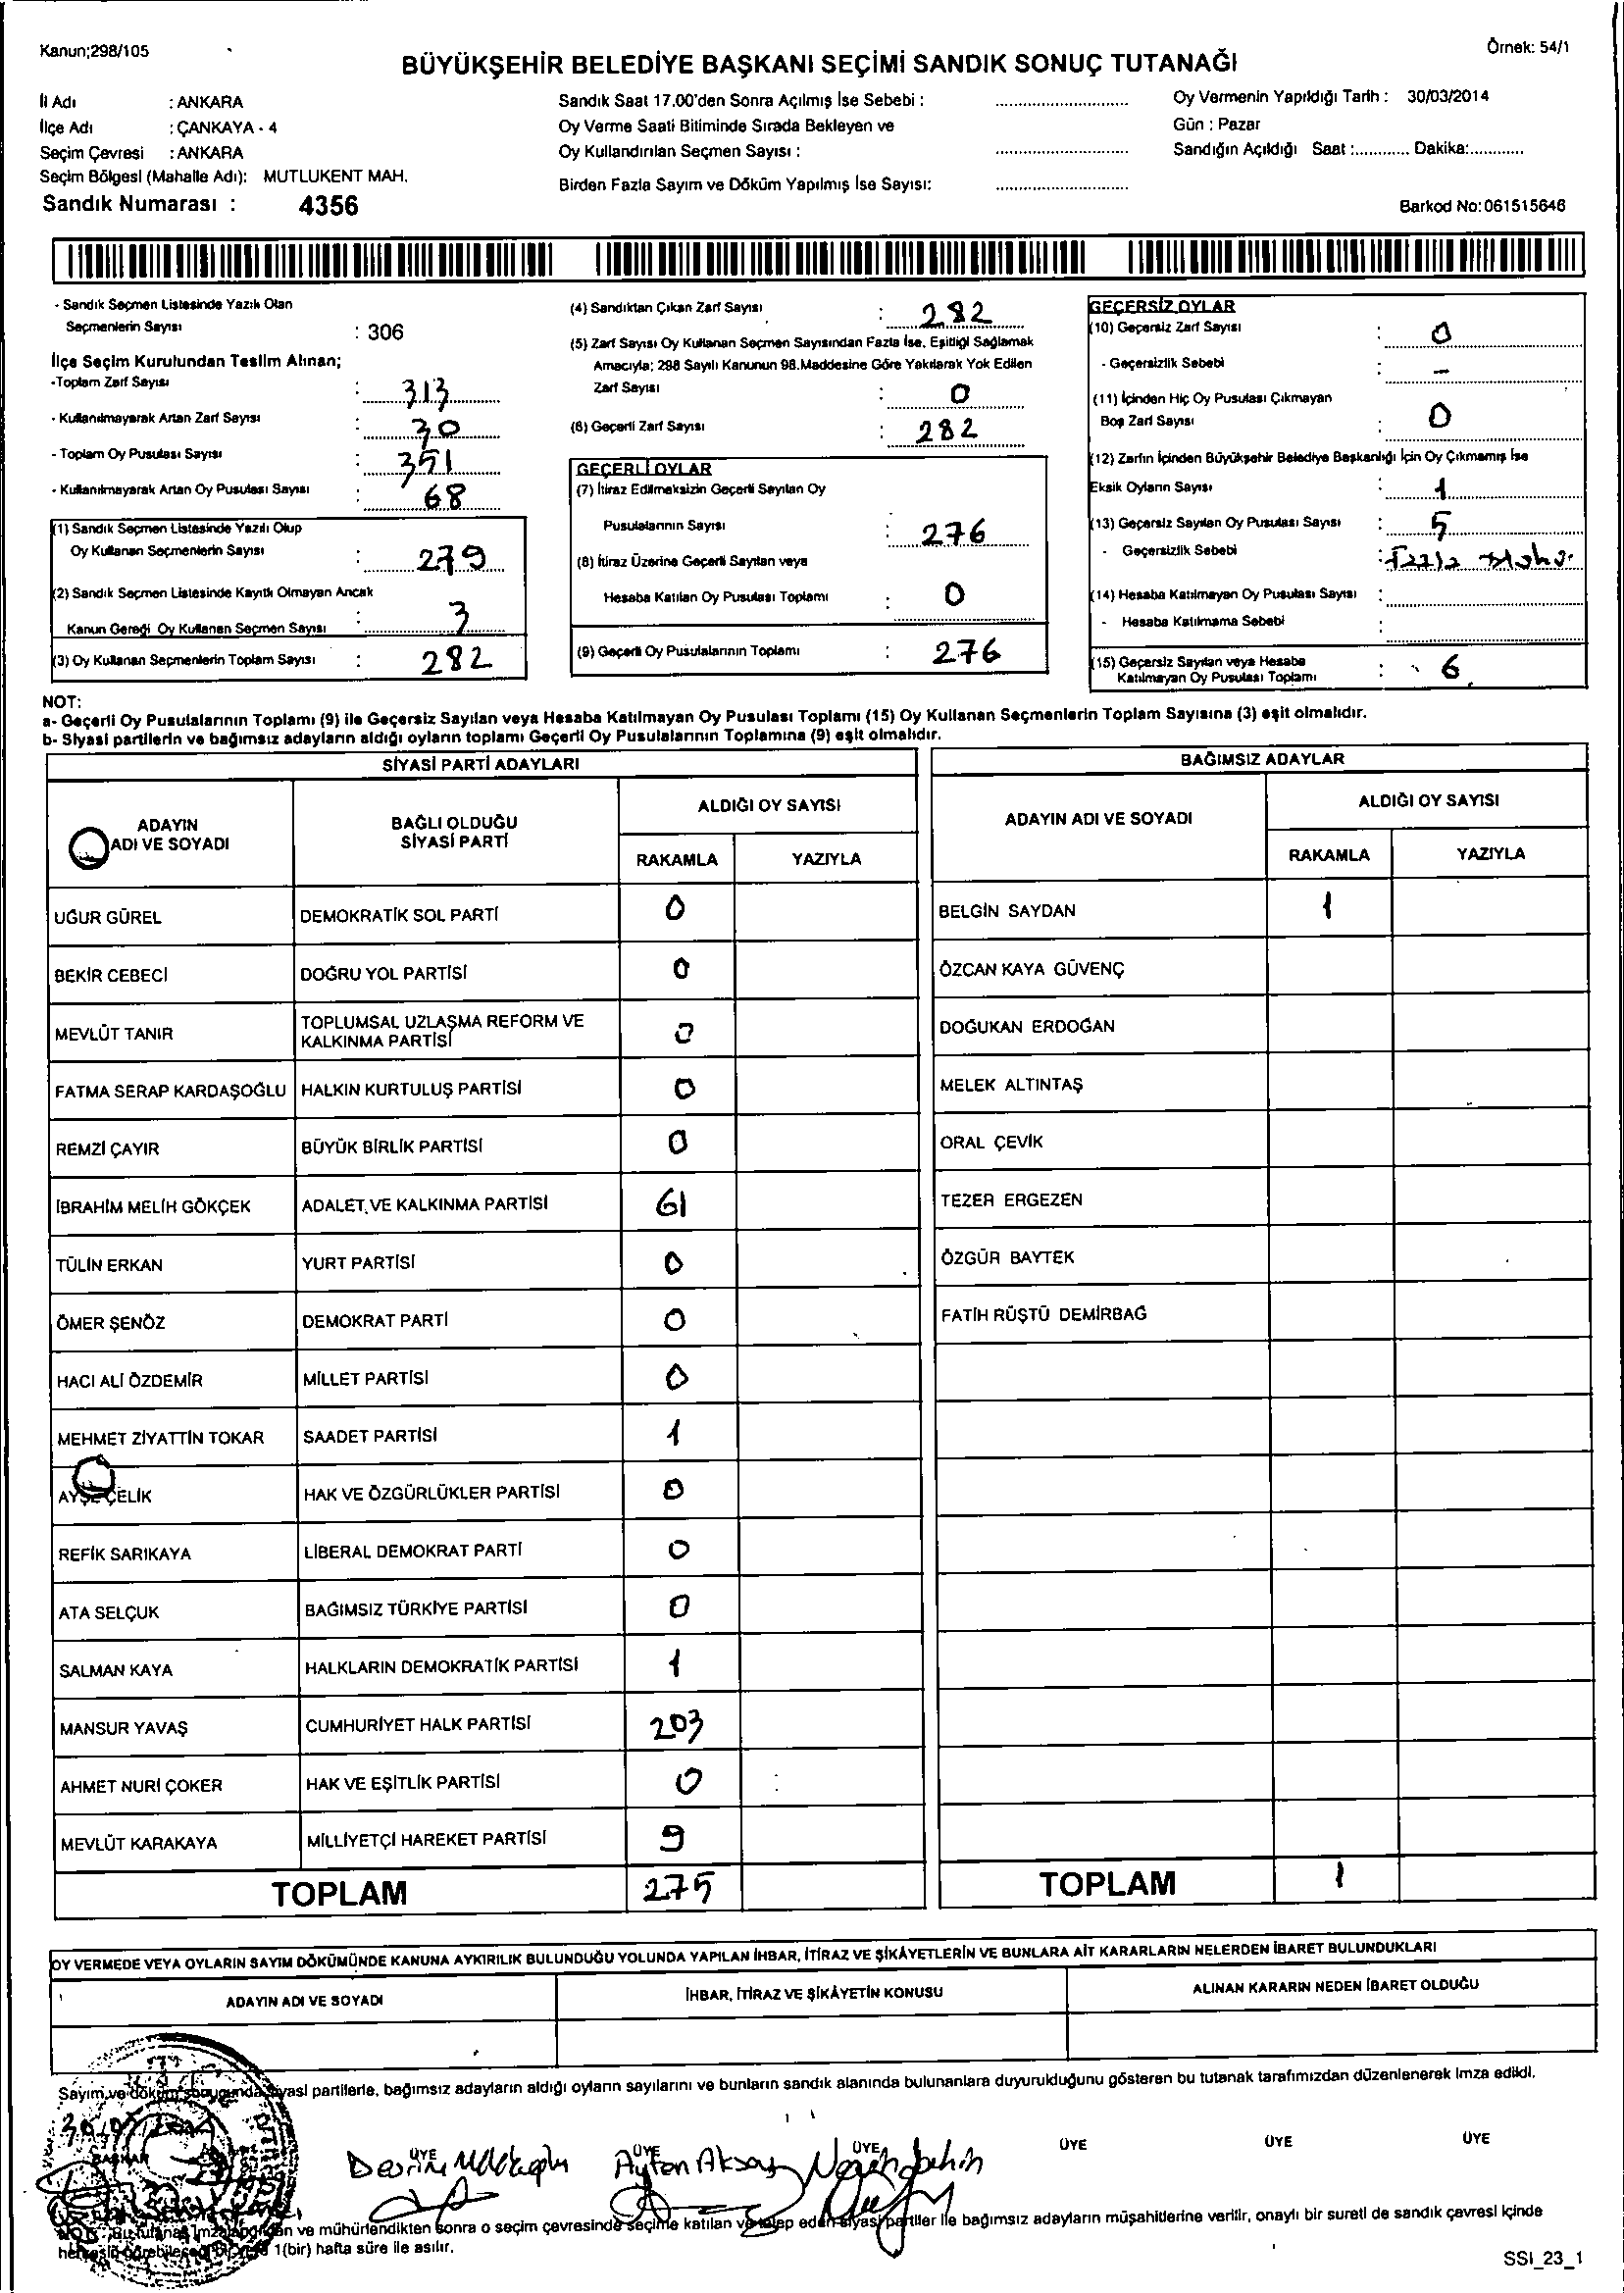 Kanun;298/105
Örnek: 54/1
BÜYÜKŞEHİR BELEDİYE BAŞKANI SEÇİMİ SANDIK SONUÇ TUTANAĞI
İl Adı : ANKARA
İlçe Adı : ÇANKAYA - 4
Seçim Çevresi : ANKARA
Seçim Bölgesi (Mahalle Adı): MUTLUKENT MAH.
Sandık Numarası : 4356
Sandık Saat 17.00'den Sonra Açılmış İse Sebebi :
Oy Verme Saati Bitiminde Sırada Bekleyen ve
Oy Kullandırılan Seçmen Sayısı :
Birden Fazla Sayım ve Döküm Yapılmış İse Sayısı:
Oy Vermenin Yapıldığı Tarih : 30/03/2014
Gün : Pazar
Sandığın Açıldığı Saat :............ Dakika:............
Barkod No:061515646
- Sandık Seçmen Listesinde Yazılı Olan
Seçmenlerin Sayısı : 306
İlçe Seçim Kurulundan Teslim Alınan;
-Toplam Zarf Sayısı : 313
- Kullanılmayarak Artan Zarf Sayısı : 30
- Toplam Oy Pusulası Sayısı : 351
- Kullanılmayarak Artan Oy Pusulası Sayısı : 68
(1) Sandık Seçmen Listesinde Yazılı Olup
Oy Kullanan Seçmenlerin Sayısı : 279
(2) Sandık Seçmen Listesinde Kayıtlı Olmayan Ancak
Kanun Gereği Oy Kullanan Seçmen Sayısı : 3
(3) Oy Kullanan Seçmenlerin Toplam Sayısı : 282
(4) Sandıktan Çıkan Zarf Sayısı : 282
(5) Zarf Sayısı Oy Kullanan Seçmen Sayısından Fazla İse, Eşitliği Sağlamak
Amacıyla; 298 Sayılı Kanunun 98.Maddesine Göre Yakılarak Yok Edilen
Zarf Sayısı : 0
(6) Geçerli Zarf Sayısı : 282
GEÇERLİ OYLAR
(7) İtiraz Edilmeksizin Geçerli Sayılan Oy
Pusulalarının Sayısı : 276
(8) İtiraz Üzerine Geçerli Sayılan veya
Hesaba Katılan Oy Pusulası Toplamı : 0
(9) Geçerli Oy Pusulalarının Toplamı : 276
GEÇERSİZ OYLAR
(10) Geçersiz Zarf Sayısı : 0
- Geçersizlik Sebebi : -
(11) İçinden Hiç Oy Pusulası Çıkmayan
Boş Zarf Sayısı : 0
(12) Zarfın İçinden Büyükşehir Belediye Başkanlığı İçin Oy Çıkmamış İse
Eksik Oyların Sayısı : 1
(13) Geçersiz Sayılan Oy Pusulası Sayısı : 5
- Geçersizlik Sebebi : Fazla Mühür
(14) Hesaba Katılmayan Oy Pusulası Sayısı :
- Hesaba Katılmama Sebebi :
(15) Geçersiz Sayılan veya Hesaba
Katılmayan Oy Pusulası Toplamı : 6
NOT:
a- Geçerli Oy Pusulalarının Toplamı (9) ile Geçersiz Sayılan veya Hesaba Katılmayan Oy Pusulası Toplamı (15) Oy Kullanan Seçmenlerin Toplam Sayısına (3) eşit olmalıdır.
b- Siyasi partilerin ve bağımsız adayların aldığı oyların toplamı Geçerli Oy Pusulalarının Toplamına (9) eşit olmalıdır.
SİYASİ PARTİ ADAYLARI
ADAYIN ADI VE SOYADI
BAĞLI OLDUĞU SİYASİ PARTİ
ALDIĞI OY SAYISI
RAKAMLA YAZIYLA
UĞUR GÜREL DEMOKRATİK SOL PARTİ 0
BEKİR CEBECİ DOĞRU YOL PARTİSİ 0
MEVLÜT TANIR TOPLUMSAL UZLAŞMA REFORM VE KALKINMA PARTİSİ 0
FATMA SERAP KARDAŞOĞLU HALKIN KURTULUŞ PARTİSİ 0
REMZİ ÇAYIR BÜYÜK BİRLİK PARTİSİ 0
İBRAHİM MELİH GÖKÇEK ADALET VE KALKINMA PARTİSİ 61
TÜLİN ERKAN YURT PARTİSİ 0
ÖMER ŞENÖZ DEMOKRAT PARTİ 0
HACI ALİ ÖZDEMİR MİLLET PARTİSİ 0
MEHMET ZİYATTİN TOKAR SAADET PARTİSİ 1
AYŞE ÇELİK HAK VE ÖZGÜRLÜKLER PARTİSİ 0
REFİK SARIKAYA LİBERAL DEMOKRAT PARTİ 0
ATA SELÇUK BAĞIMSIZ TÜRKİYE PARTİSİ 0
SALMAN KAYA HALKLARIN DEMOKRATİK PARTİSİ 1
MANSUR YAVAŞ CUMHURİYET HALK PARTİSİ 203
AHMET NURİ ÇOKER HAK VE EŞİTLİK PARTİSİ 0
MEVLÜT KARAKAYA MİLLİYETÇİ HAREKET PARTİSİ 9
TOPLAM 275
BAĞIMSIZ ADAYLAR
ADAYIN ADI VE SOYADI
ALDIĞI OY SAYISI
RAKAMLA YAZIYLA
BELGİN SAYDAN 1
ÖZCAN KAYA GÜVENÇ
DOĞUKAN ERDOĞAN
MELEK ALTINTAŞ
ORAL ÇEVİK
TEZER ERGEZEN
ÖZGÜR BAYTEK
FATİH RÜŞTÜ DEMİRBAĞ
TOPLAM 1
OY VERMEDE VEYA OYLARIN SAYIM DÖKÜMÜNDE KANUNA AYKIRILIK BULUNDUĞU YOLUNDA YAPILAN İHBAR, İTİRAZ VE ŞİKÂYETLERİN VE BUNLARA AİT KARARLARIN NELERDEN İBARET BULUNDUKLARI
ADAYIN ADI VE SOYADI
İHBAR, İTİRAZ VE ŞİKÂYETİN KONUSU
ALINAN KARARIN NEDEN İBARET OLDUĞU
Sayım ve döküm sonucunda siyasi partilerle, bağımsız adayların aldığı oyların sayılarını ve bunların sandık alanında bulunanlara duyurulduğunu gösteren bu tutanak tarafımızdan düzenlenerek imza edildi.
BAŞKAN ÜYE ÜYE ÜYE ÜYE ÜYE ÜYE
Ayten Aksoy
NOT: Bu tutanak imzalandıktan ve mühürlendikten sonra o seçim çevresinde seçime katılan ve talep eden siyasi partiler ile bağımsız adayların müşahitlerine verilir, onaylı bir sureti de sandık çevresi içinde
herkesin görebileceği bir yere 1(bir) hafta süre ile asılır.
SSI_23_1